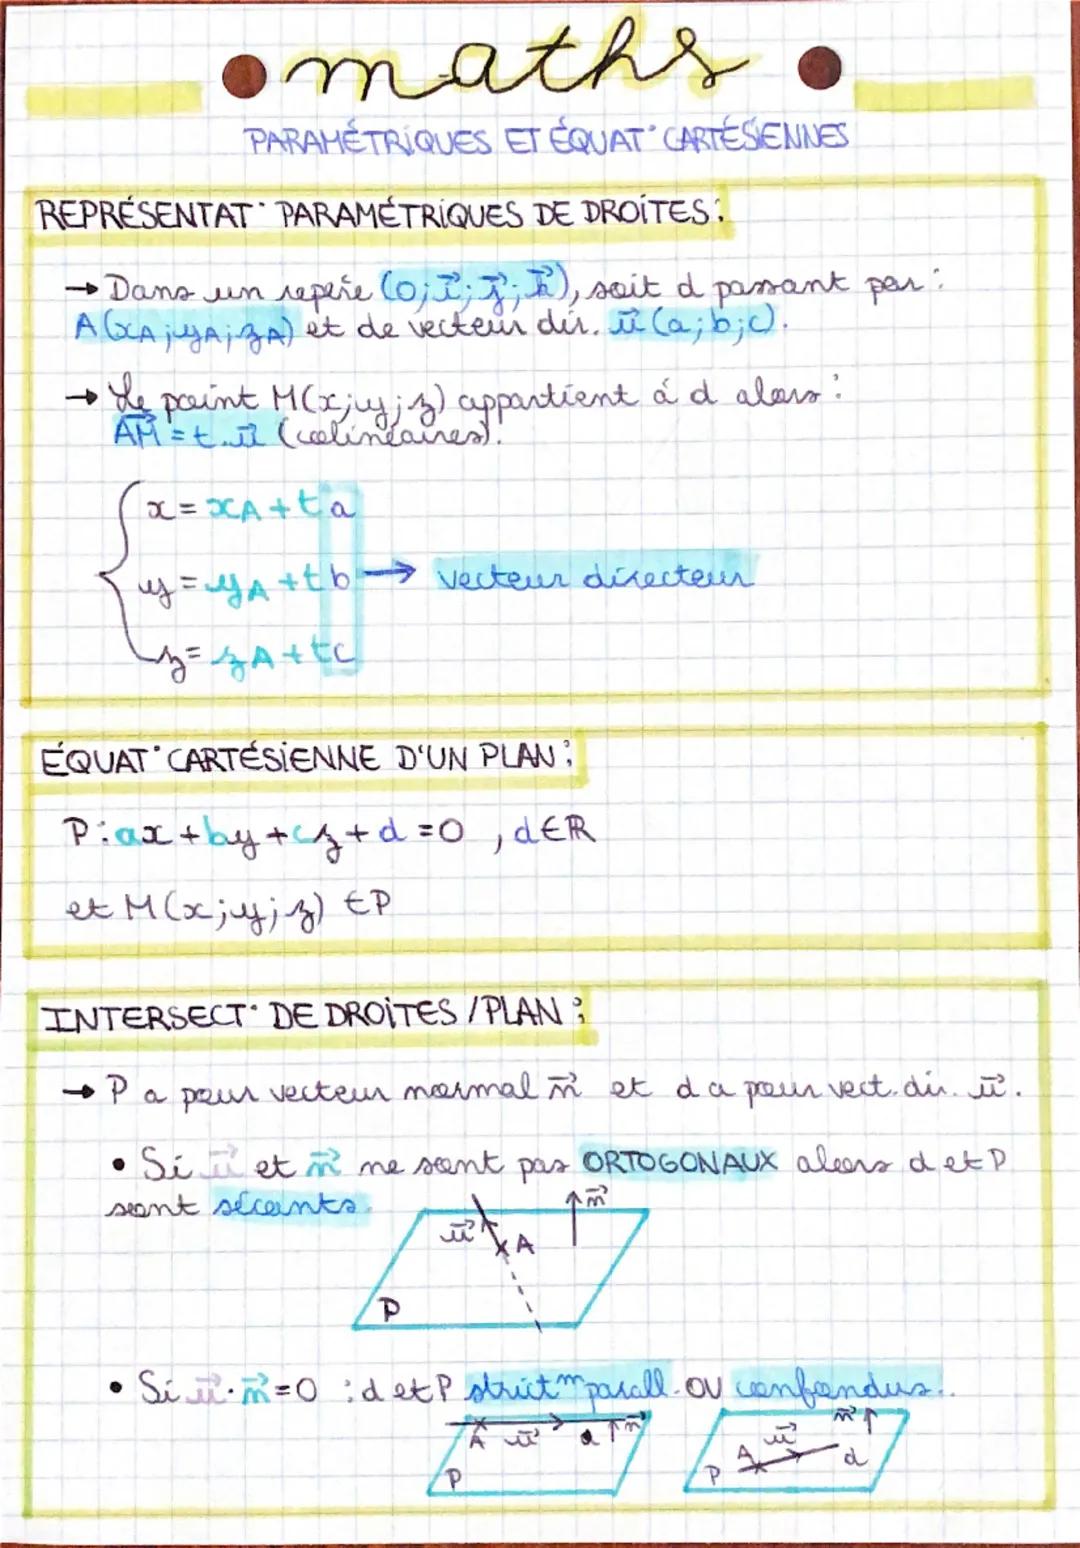 maths
PARAMÉTRIQUES ET ÉQUAT° CARTÉSIENNES
REPRÉSENTAT° PARAMÉTRIQUES DE DROITES :
→ Dans un repère (O; i⃗; j⃗; k⃗), soit d passant par :
A(xA; yA; zA) et de vecteur dir. u⃗ (a; b; c).
→ Le point M(x; y; z) appartient à d alors :
AM⃗ = t.u⃗ (colinéaires).
x = xA + ta
y = yA + tb → vecteur directeur
z = zA + tc
ÉQUAT° CARTÉSIENNE D'UN PLAN :
P : ax + by + cz + d = 0 , d ∈ ℝ
et M(x; y; z) ∈ P
INTERSECT° DE DROITES / PLAN :
→ P a pour vecteur normal n⃗ et d a pour vect. dir. u⃗.
• Si u⃗ et n⃗ ne sont pas ORTOGONAUX alors d et P
sont sécants.
n⃗
u⃗ A
P
• Si u⃗ . n⃗ = 0 : d et P strictm parall. OU confondus..
A u⃗ d n⃗
P
n⃗
A u⃗ d
P